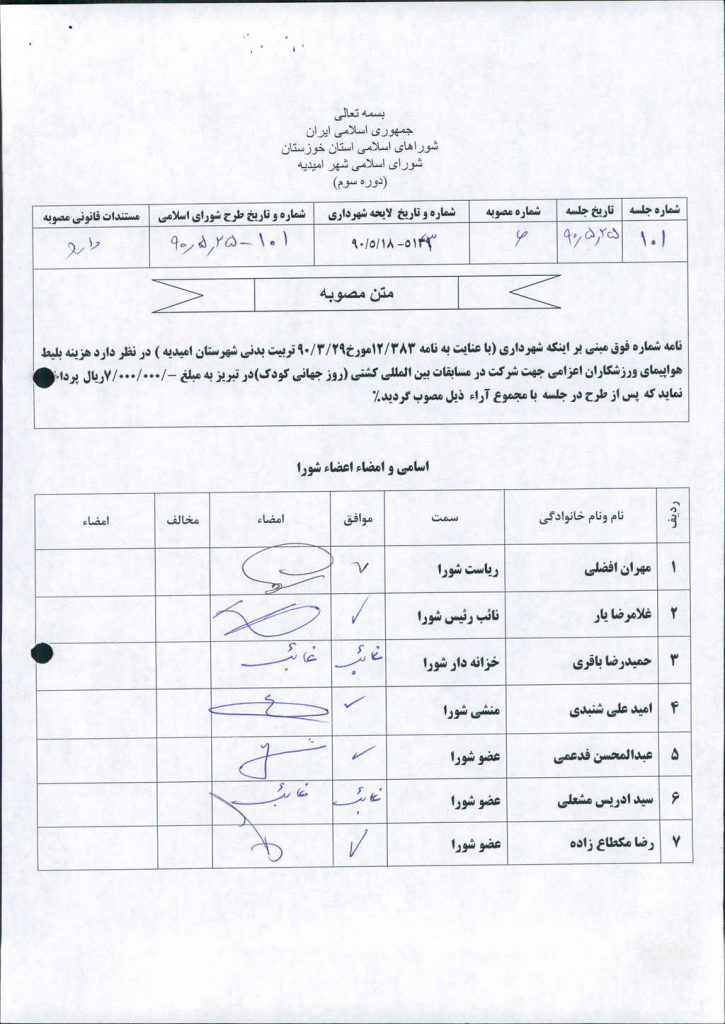 بسمه تعالی
جمهوری اسلامی ایران
شوراهای اسلامی استان خوزستان
شورای اسلامی شهر امیدیه
(دوره سوم)
شماره جلسه تاریخ جلسه شماره مصوبه شماره و تاریخ لایحه شهرداری شماره و تاریخ طرح شورای اسلامی مستندات قانونی مصوبه
۱۰۱ ۹۰٫۵٫۲۵ ۶ ۹۰/۵/۱۸ ۹۰٫۵٫۲۵-۱۰۱ دارد
متن مصوبه
نامه شماره فوق مبنی بر اینکه شهرداری (با عنایت به نامه ۱۲/۳۸۳مورخ۹۰/۳/۲۹تربیت بدنی شهرستان امیدیه ) در نظر دارد هزینه بلیط
هواپیمای ورزشکاران اعزامی جهت شرکت در مسابقات بین المللی کشتی (روز جهانی کودک)در تبریز به مبلغ -/۷/۰۰۰/۰۰۰ریال پرداخت
نماید که پس از طرح در جلسه با مجموع آراء ذیل مصوب گردید٪
اسامی و امضاء اعضاء شورا
ردیف نام ونام خانوادگی سمت موافق امضاء مخالف امضاء
۱ مهران افضلی ریاست شورا ✓
۲ غلامرضا یار نائب رئیس شورا ✓
۳ حمیدرضا باقری خزانه دار شورا غائب غائب
۴ امید علی شنبدی منشی شورا ✓
۵ عبدالمحسن فدعمی عضو شورا ✓
۶ سید ادریس مشعلی عضو شورا غائب غائب
۷ رضا مکطاع زاده عضو شورا ✓